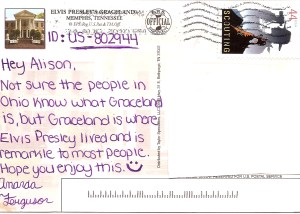 ELVIS PRESLEY'S GRACELAND
MEMPHIS, TENNESSEE
OFFICIAL
SCOUTING
44
ID: US-802944
Hey Alison,
Not sure the people in
Ohio know what Graceland
is, but Graceland is where
Elvis Presley lived and is
remarkle to most people.
Hope you enjoy this.
Amanda
Ferguson